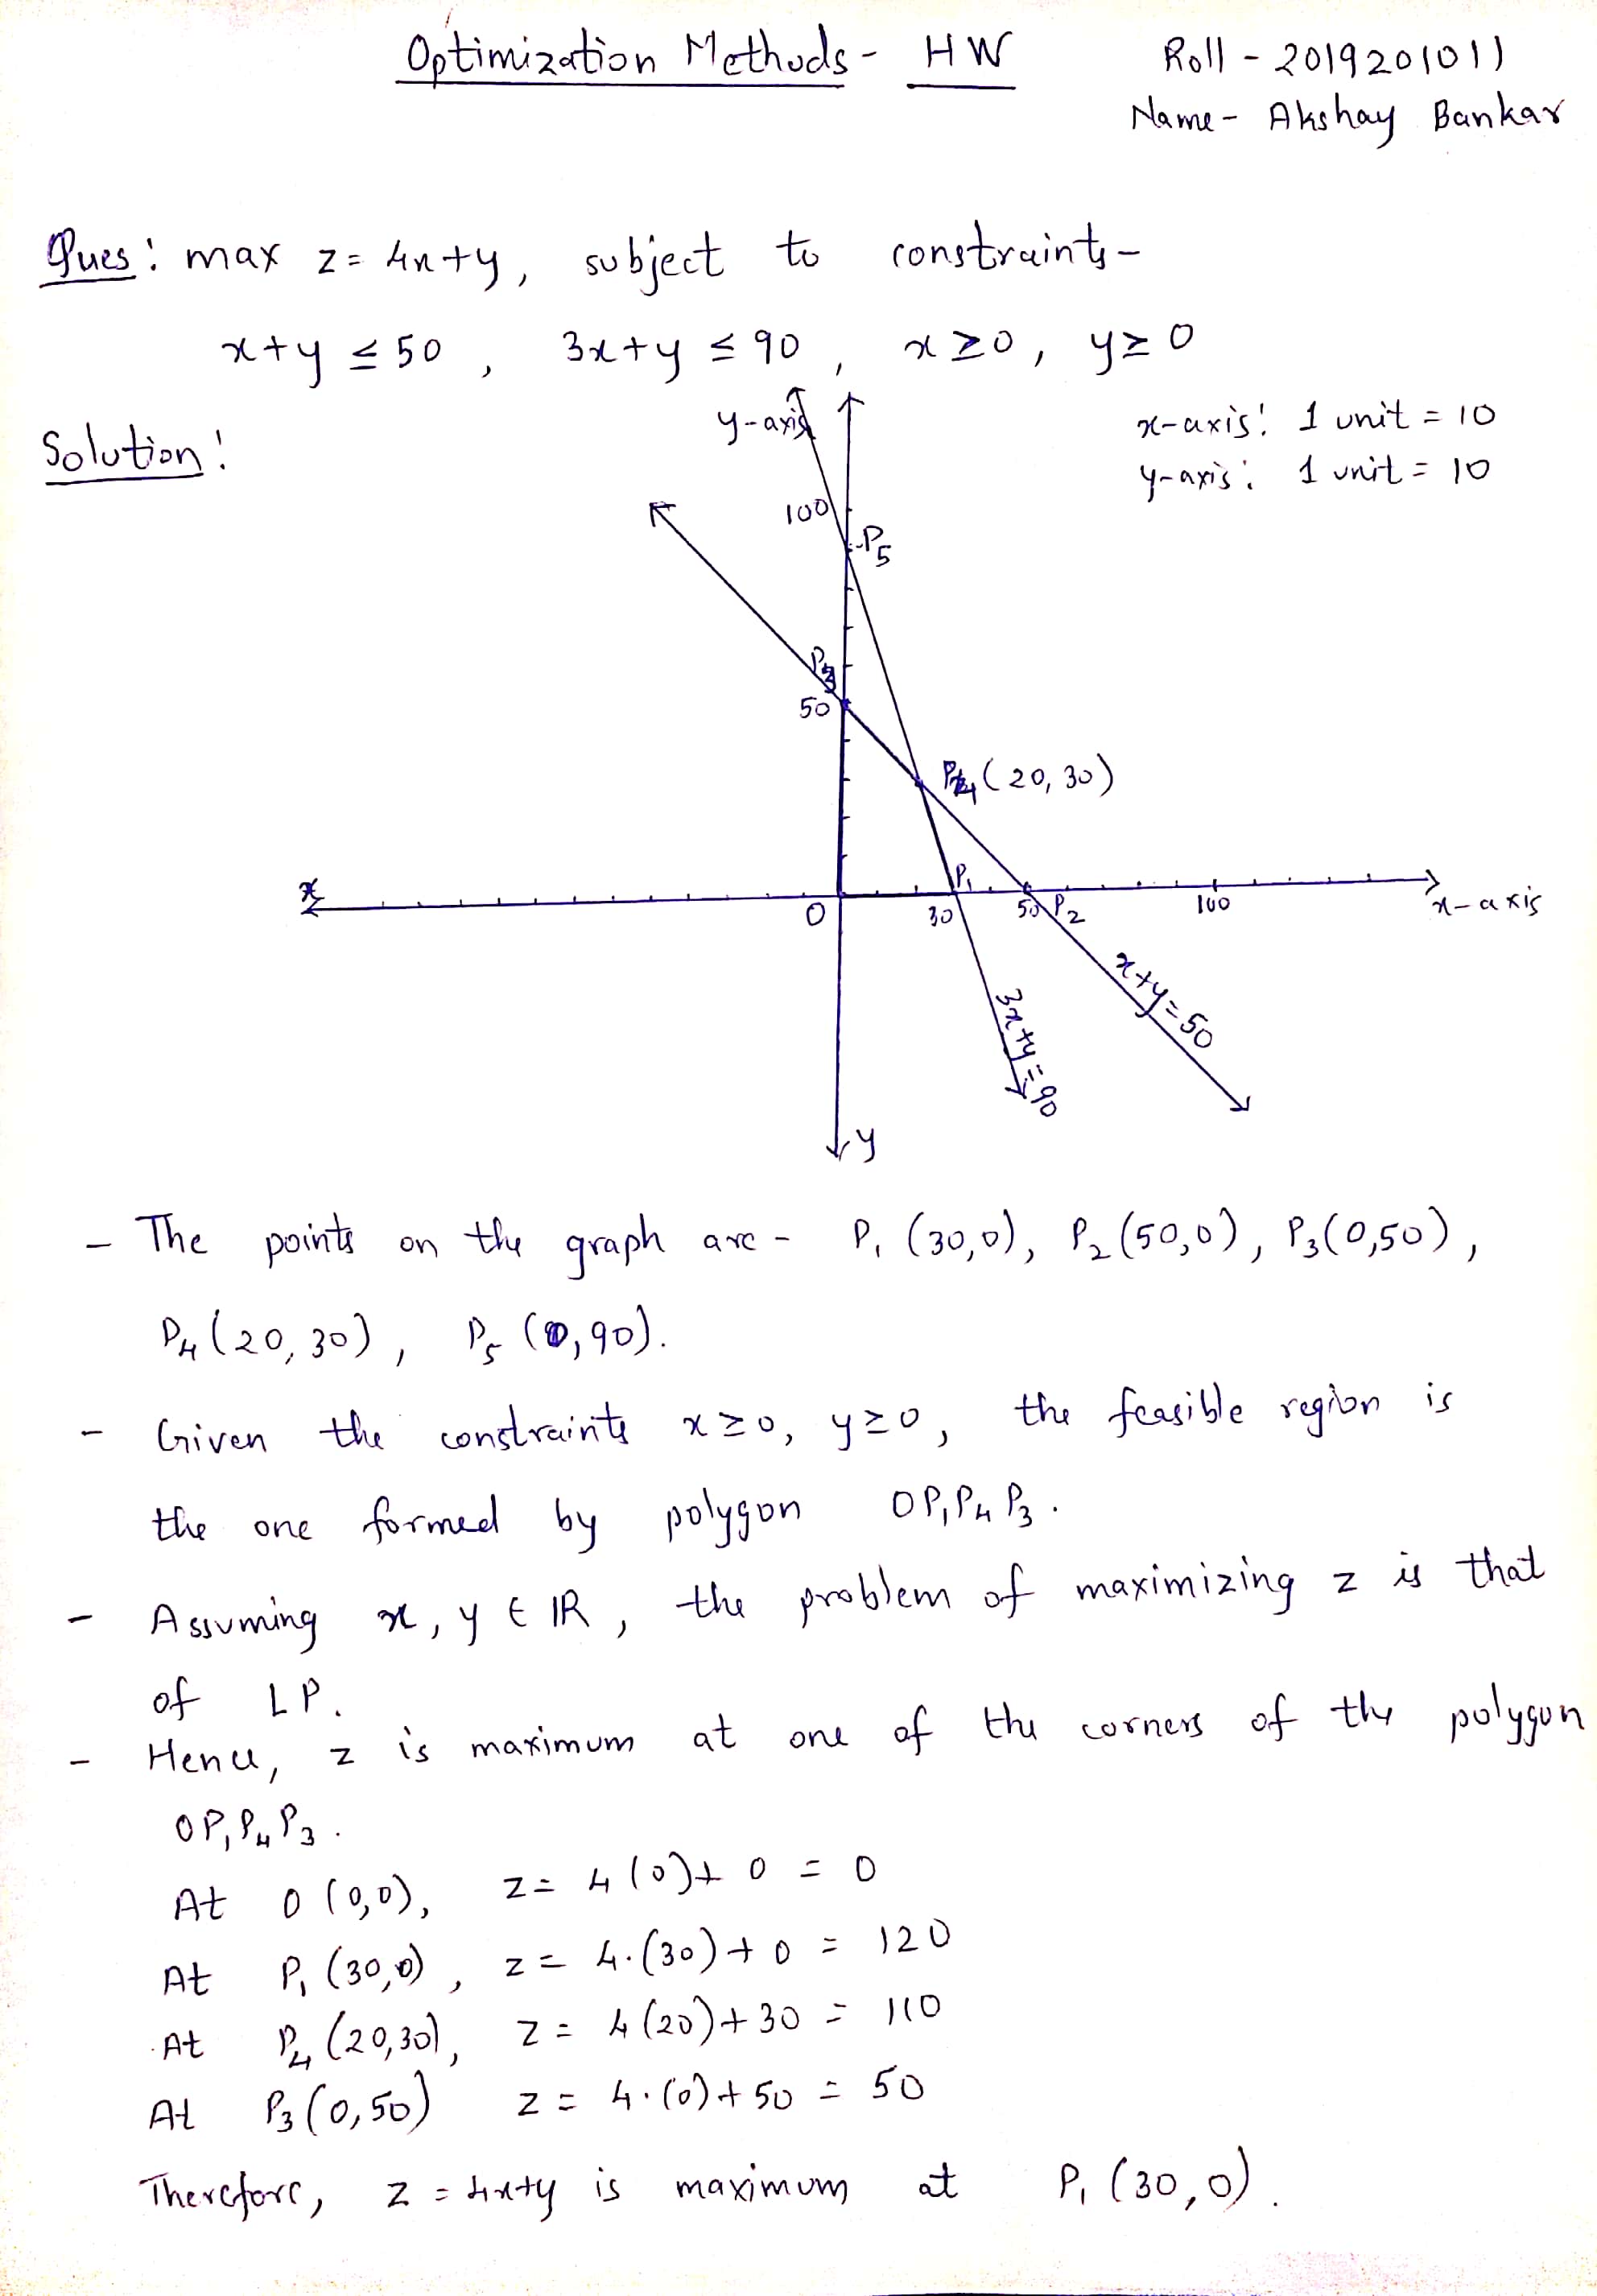 Optimization Methods - HW
Roll - 2019201011
Name - Akshay Bankar
Ques: max z = 4x+y, subject to constraints -
x+y ≤ 50, 3x+y ≤ 90, x ≥ 0, y ≥ 0
Solution:
x-axis: 1 unit = 10
y-axis: 1 unit = 10
y-axis
100
P5
P3
50
P4 (20, 30)
x
P1
0
30
50
P2
100
x-axis
x+y=50
3x+y=90
y
- The points on the graph are - P1 (30,0), P2 (50,0), P3 (0,50),
P4 (20,30), P5 (0,90).
- Given the constraints x ≥ 0, y ≥ 0, the feasible region is
the one formed by polygon OP1P4P3.
- Assuming x, y ∈ ℝ, the problem of maximizing z is that
of LP.
- Hence, z is maximum at one of the corners of the polygon
OP1P4P3.
At O (0,0), z = 4(0)+0 = 0
At P1 (30,0), z = 4.(30)+0 = 120
At P4 (20,30), z = 4(20)+30 = 110
At P3 (0,50) z = 4.(0)+50 = 50
Therefore, z = 4x+y is maximum at P1 (30,0).